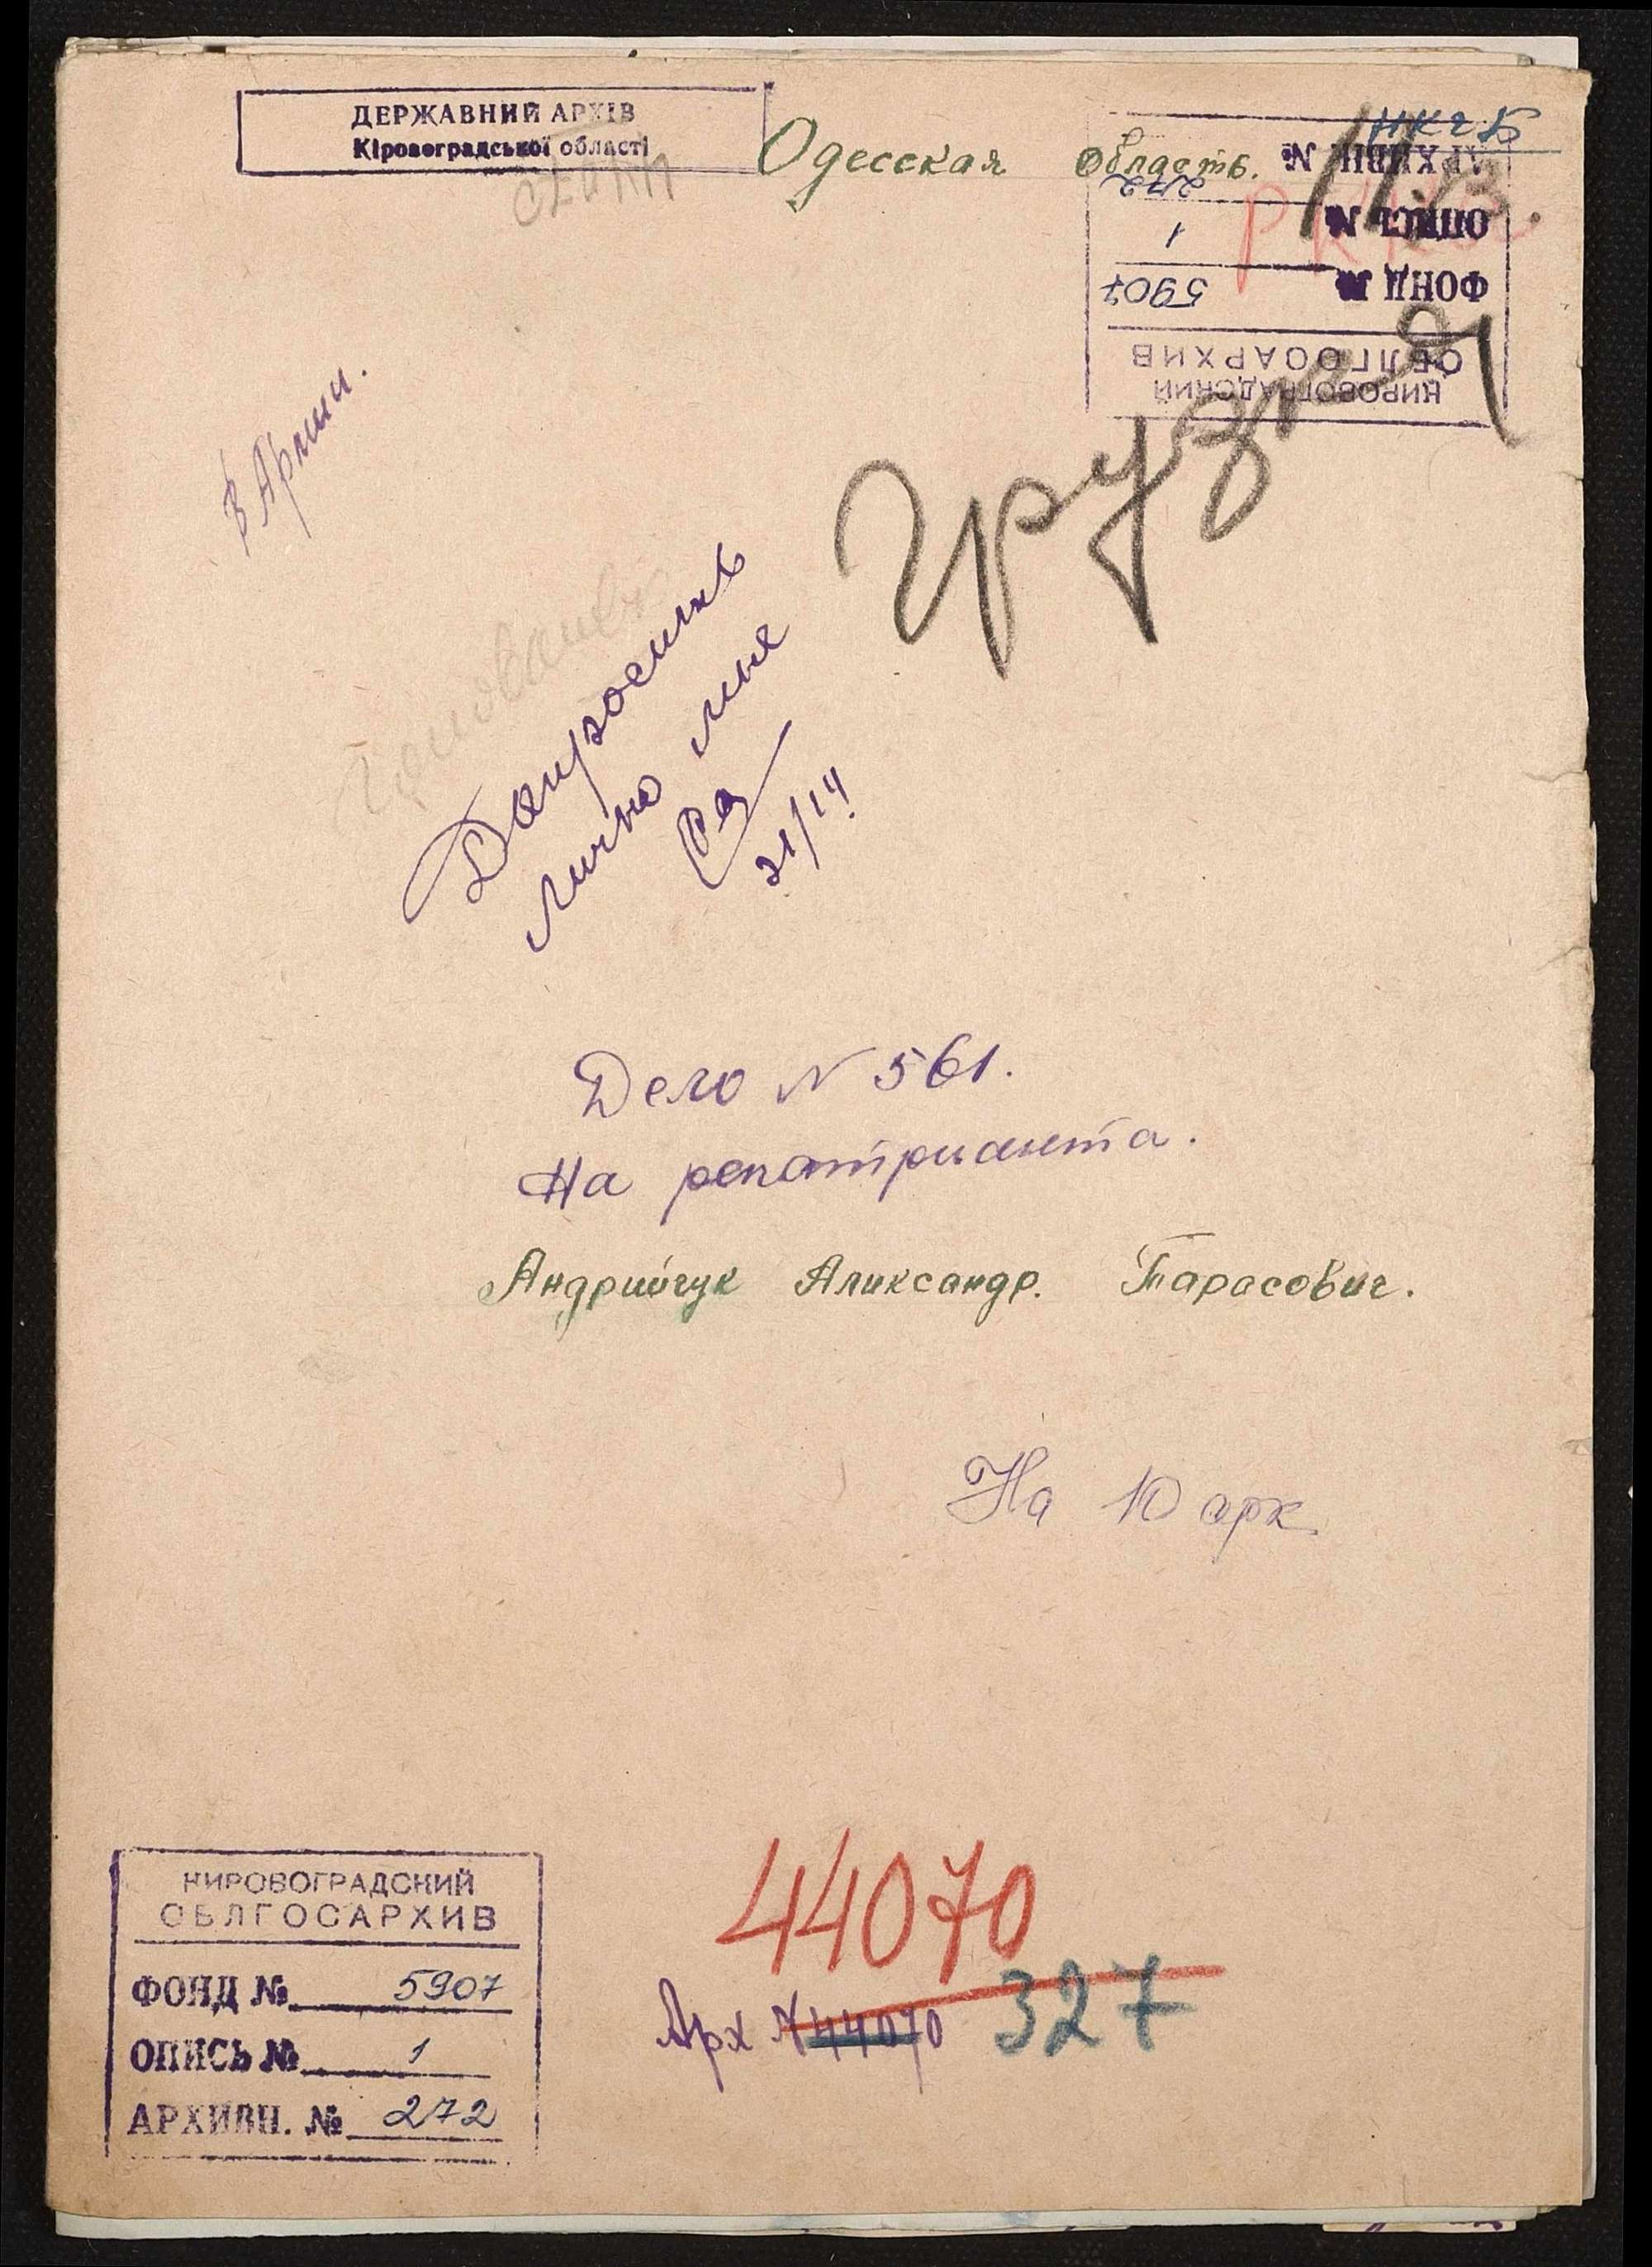 ДЕРЖАВНИЙ АРХІВ
Кіровоградської області
Одесская область.
НКГБ
АРХИВН №
272
ОПИСЬ № 1
ФОНД № 5907
ОБЛГОСАРХИВ
КИРОВОГРАДСКИЙ
В Армии.
Допросить
лично мне
21/IV
Дело N 561.
На репатрианта.
Андрийчук Александр. Тарасович.
На 10 арк.
КИРОВОГРАДСКИЙ
ОБЛГОСАРХИВ
ФОНД № 5907
ОПИСЬ № 1
АРХИВН. № 272
44070
Арх N 44070 327